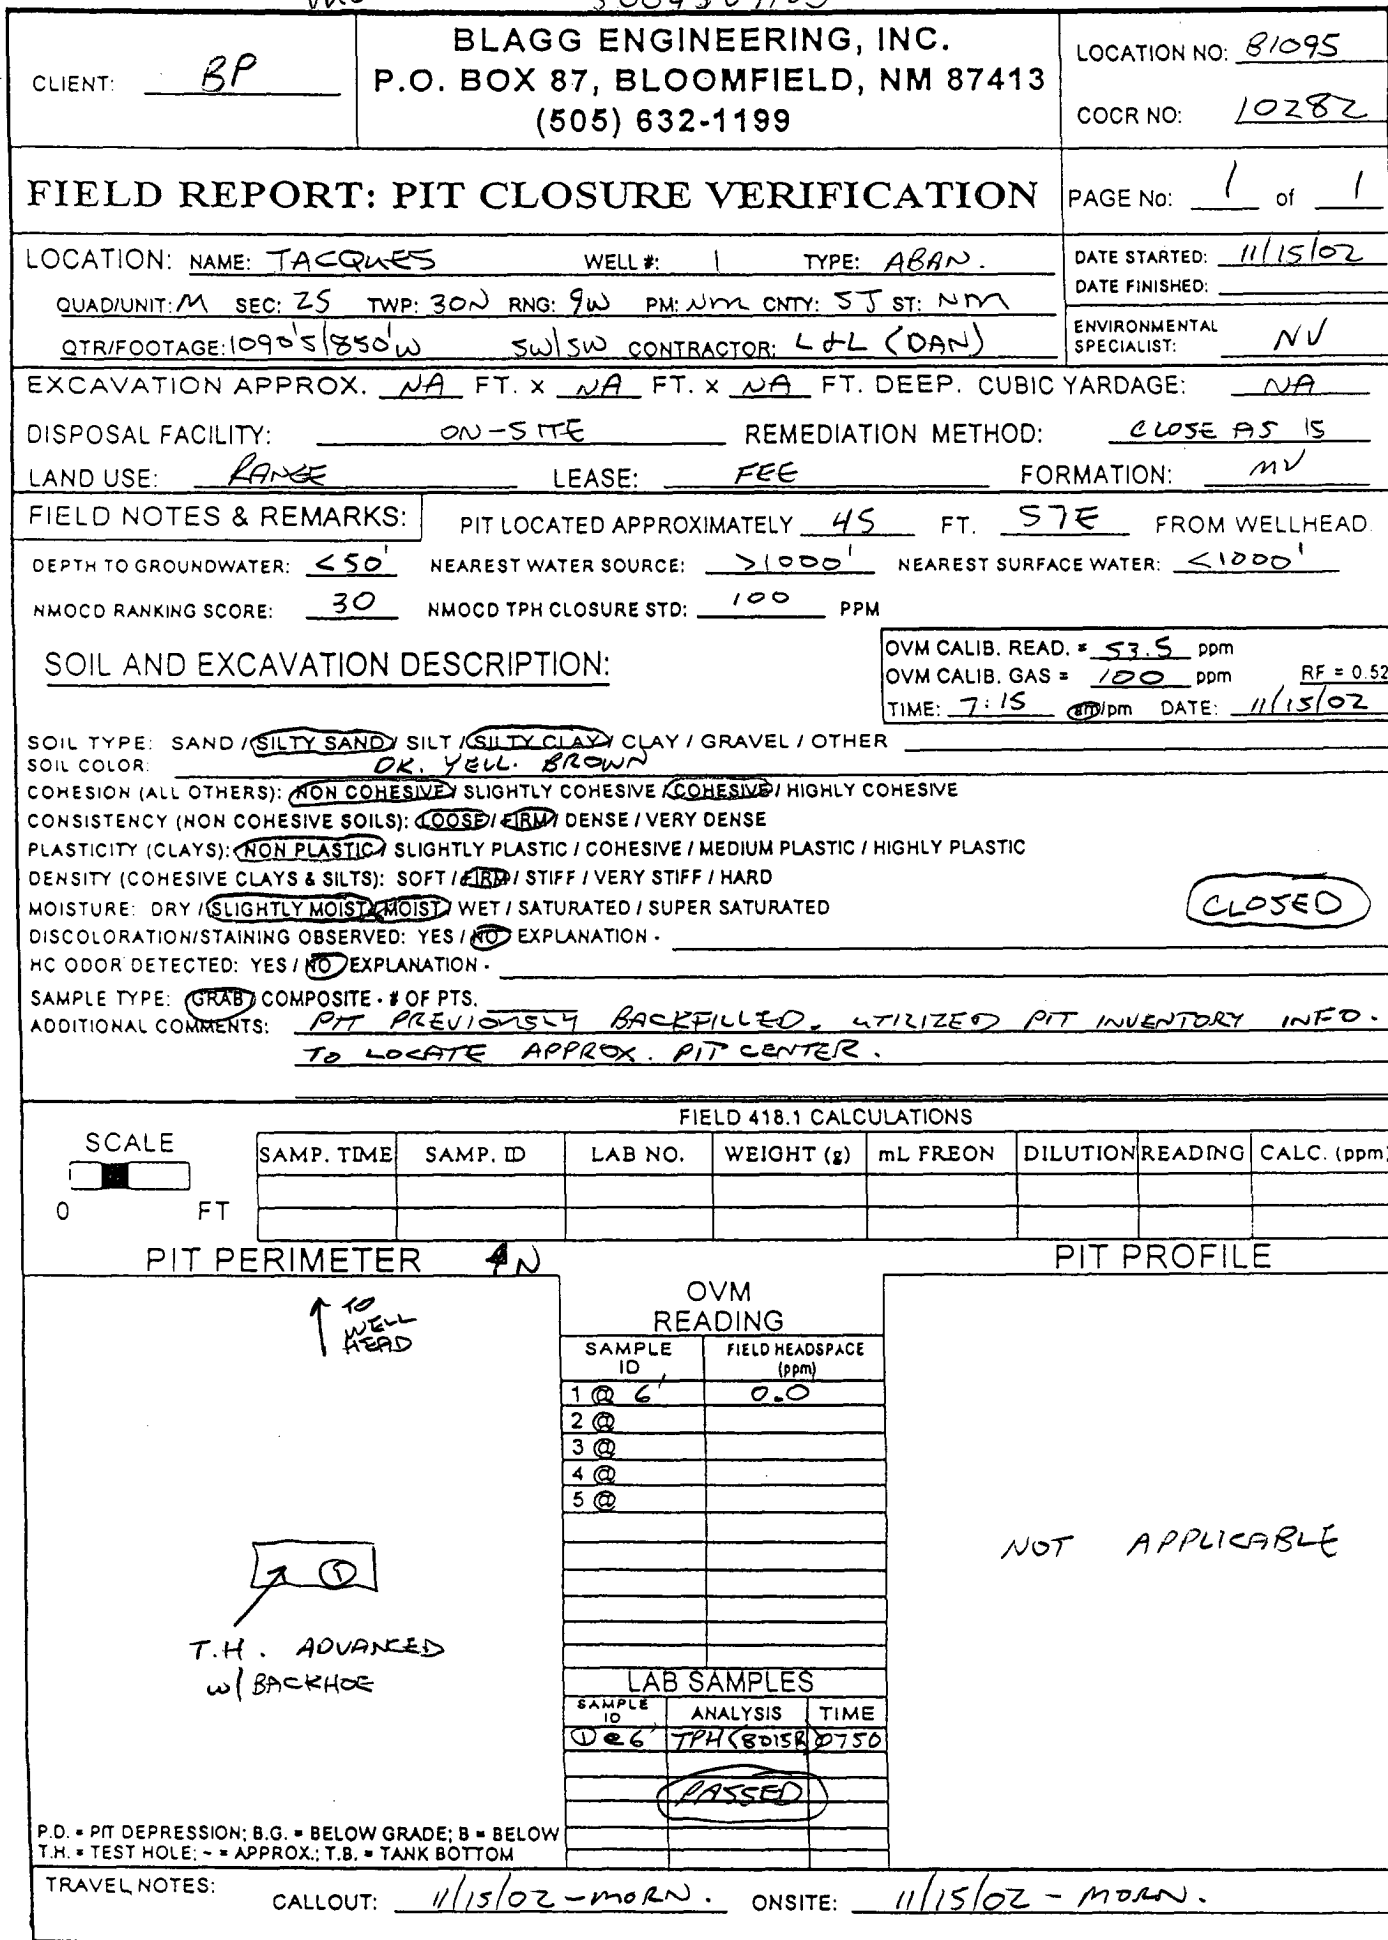 BLAGG ENGINEERING, INC.
P.O. BOX 87, BLOOMFIELD, NM 87413
(505) 632-1199
CLIENT: BP
LOCATION NO: B1095
COCR NO: 10282
FIELD REPORT: PIT CLOSURE VERIFICATION
PAGE No: 1 of 1
LOCATION: NAME: TACQUES WELL #: 1 TYPE: ABAN.
DATE STARTED: 11/15/02
DATE FINISHED:
QUAD/UNIT: M SEC: 25 TWP: 30N RNG: 9W PM: NM CNTY: SJ ST: NM
QTR/FOOTAGE: 1090'S/850'W SW/SW CONTRACTOR: L+L (DAN)
ENVIRONMENTAL
SPECIALIST: NV
EXCAVATION APPROX. NA FT. x NA FT. x NA FT. DEEP. CUBIC YARDAGE: NA
DISPOSAL FACILITY: ON-SITE REMEDIATION METHOD: CLOSE AS IS
LAND USE: RANGE LEASE: FEE FORMATION: MV
FIELD NOTES & REMARKS: PIT LOCATED APPROXIMATELY 45 FT. S7E FROM WELLHEAD.
DEPTH TO GROUNDWATER: <50' NEAREST WATER SOURCE: >1000' NEAREST SURFACE WATER: <1000'
NMOCD RANKING SCORE: 30 NMOCD TPH CLOSURE STD: 100 PPM
SOIL AND EXCAVATION DESCRIPTION:
OVM CALIB. READ. = 53.5 ppm
OVM CALIB. GAS = 100 ppm RF = 0.52
TIME: 7:15 am/pm DATE: 11/15/02
SOIL TYPE: SAND / SILTY SAND / SILT / SILTY CLAY / CLAY / GRAVEL / OTHER
SOIL COLOR: DK. YELL. BROWN
COHESION (ALL OTHERS): NON COHESIVE / SLIGHTLY COHESIVE / COHESIVE / HIGHLY COHESIVE
CONSISTENCY (NON COHESIVE SOILS): LOOSE / FIRM / DENSE / VERY DENSE
PLASTICITY (CLAYS): NON PLASTIC / SLIGHTLY PLASTIC / COHESIVE / MEDIUM PLASTIC / HIGHLY PLASTIC
DENSITY (COHESIVE CLAYS & SILTS): SOFT / FIRM / STIFF / VERY STIFF / HARD
MOISTURE: DRY / SLIGHTLY MOIST / MOIST / WET / SATURATED / SUPER SATURATED
CLOSED
DISCOLORATION/STAINING OBSERVED: YES / NO EXPLANATION -
HC ODOR DETECTED: YES / NO EXPLANATION -
SAMPLE TYPE: GRAB / COMPOSITE - # OF PTS.
ADDITIONAL COMMENTS: PIT PREVIOUSLY BACKFILLED. UTILIZED PIT INVENTORY INFO.
TO LOCATE APPROX. PIT CENTER.
FIELD 418.1 CALCULATIONS
SCALE
0 FT
SAMP. TIME SAMP. ID LAB NO. WEIGHT (g) mL FREON DILUTION READING CALC. (ppm)
PIT PERIMETER N
PIT PROFILE
TO
WELL
HEAD
OVM
READING
SAMPLE ID FIELD HEADSPACE (ppm)
1 @ 6' 0.0
2 @
3 @
4 @
5 @
NOT APPLICABLE
1
T.H. ADVANCED
w/ BACKHOE
LAB SAMPLES
SAMPLE ID ANALYSIS TIME
① @ 6' TPH (8015B) 0750
PASSED
P.D. = PIT DEPRESSION; B.G. = BELOW GRADE; B = BELOW
T.H. = TEST HOLE; ~ = APPROX.; T.B. = TANK BOTTOM
TRAVEL NOTES: CALLOUT: 11/15/02 - MORN. ONSITE: 11/15/02 - MORN.